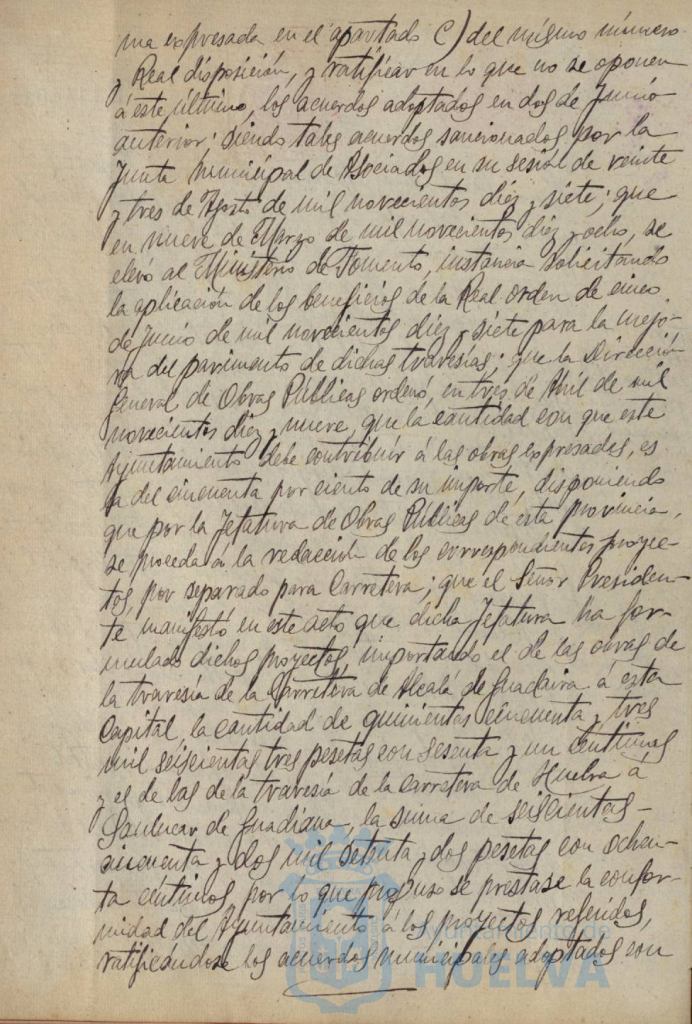 ma expresada en el apartado C) del mismo número
y Real disposición, y ratificar en lo que no se oponen
á este último, los acuerdos adoptados en dos de Junio
anterior; siendo tales acuerdos sancionados por la
Junta Municipal de Asociados en su sesión de veinte
y tres de Agosto de mil novecientos diez y siete; que
en nueve de Marzo de mil novecientos diez y ocho, se
elevó al Ministerio de Fomento, instancia solicitando
la aplicación de los beneficios de la Real orden de cinco
de Junio de mil novecientos diez y siete para la mejo-
ra del pavimento de dichas travesías; que la Dirección
General de Obras Públicas ordenó, en tres de Abril de mil
novecientos diez y nueve, que la cantidad con que este
Ayuntamiento debe contribuir á las obras expresadas, es
la del cincuenta por ciento de su importe, disponiendo
que por la Jefatura de Obras Públicas de esta provincia,
se proceda á la redacción de los correspondientes proyec-
tos, por separado para Carretera; que el Señor Presiden-
te manifestó en este acto que dicha Jefatura ha for-
mulado dichos proyectos, importando el de las obras de
la travesía de la Carretera de Alcalá de Guadaira á esta
Capital, la cantidad de quinientas cincuenta y tres
mil seiscientas tres pesetas con sesenta y un centimos
y el de las de la travesía de la carretera de Huelva á
Sanlucar de Guadiana, la suma de seiscientas
cincuenta y dos mil setenta y dos pesetas con ochen-
ta centimos por lo que propuso se prestase la confor-
midad del Ayuntamiento á los proyectos referidos,
ratificándose los acuerdos municipales adoptados con
Ayuntamiento de
HUELVA